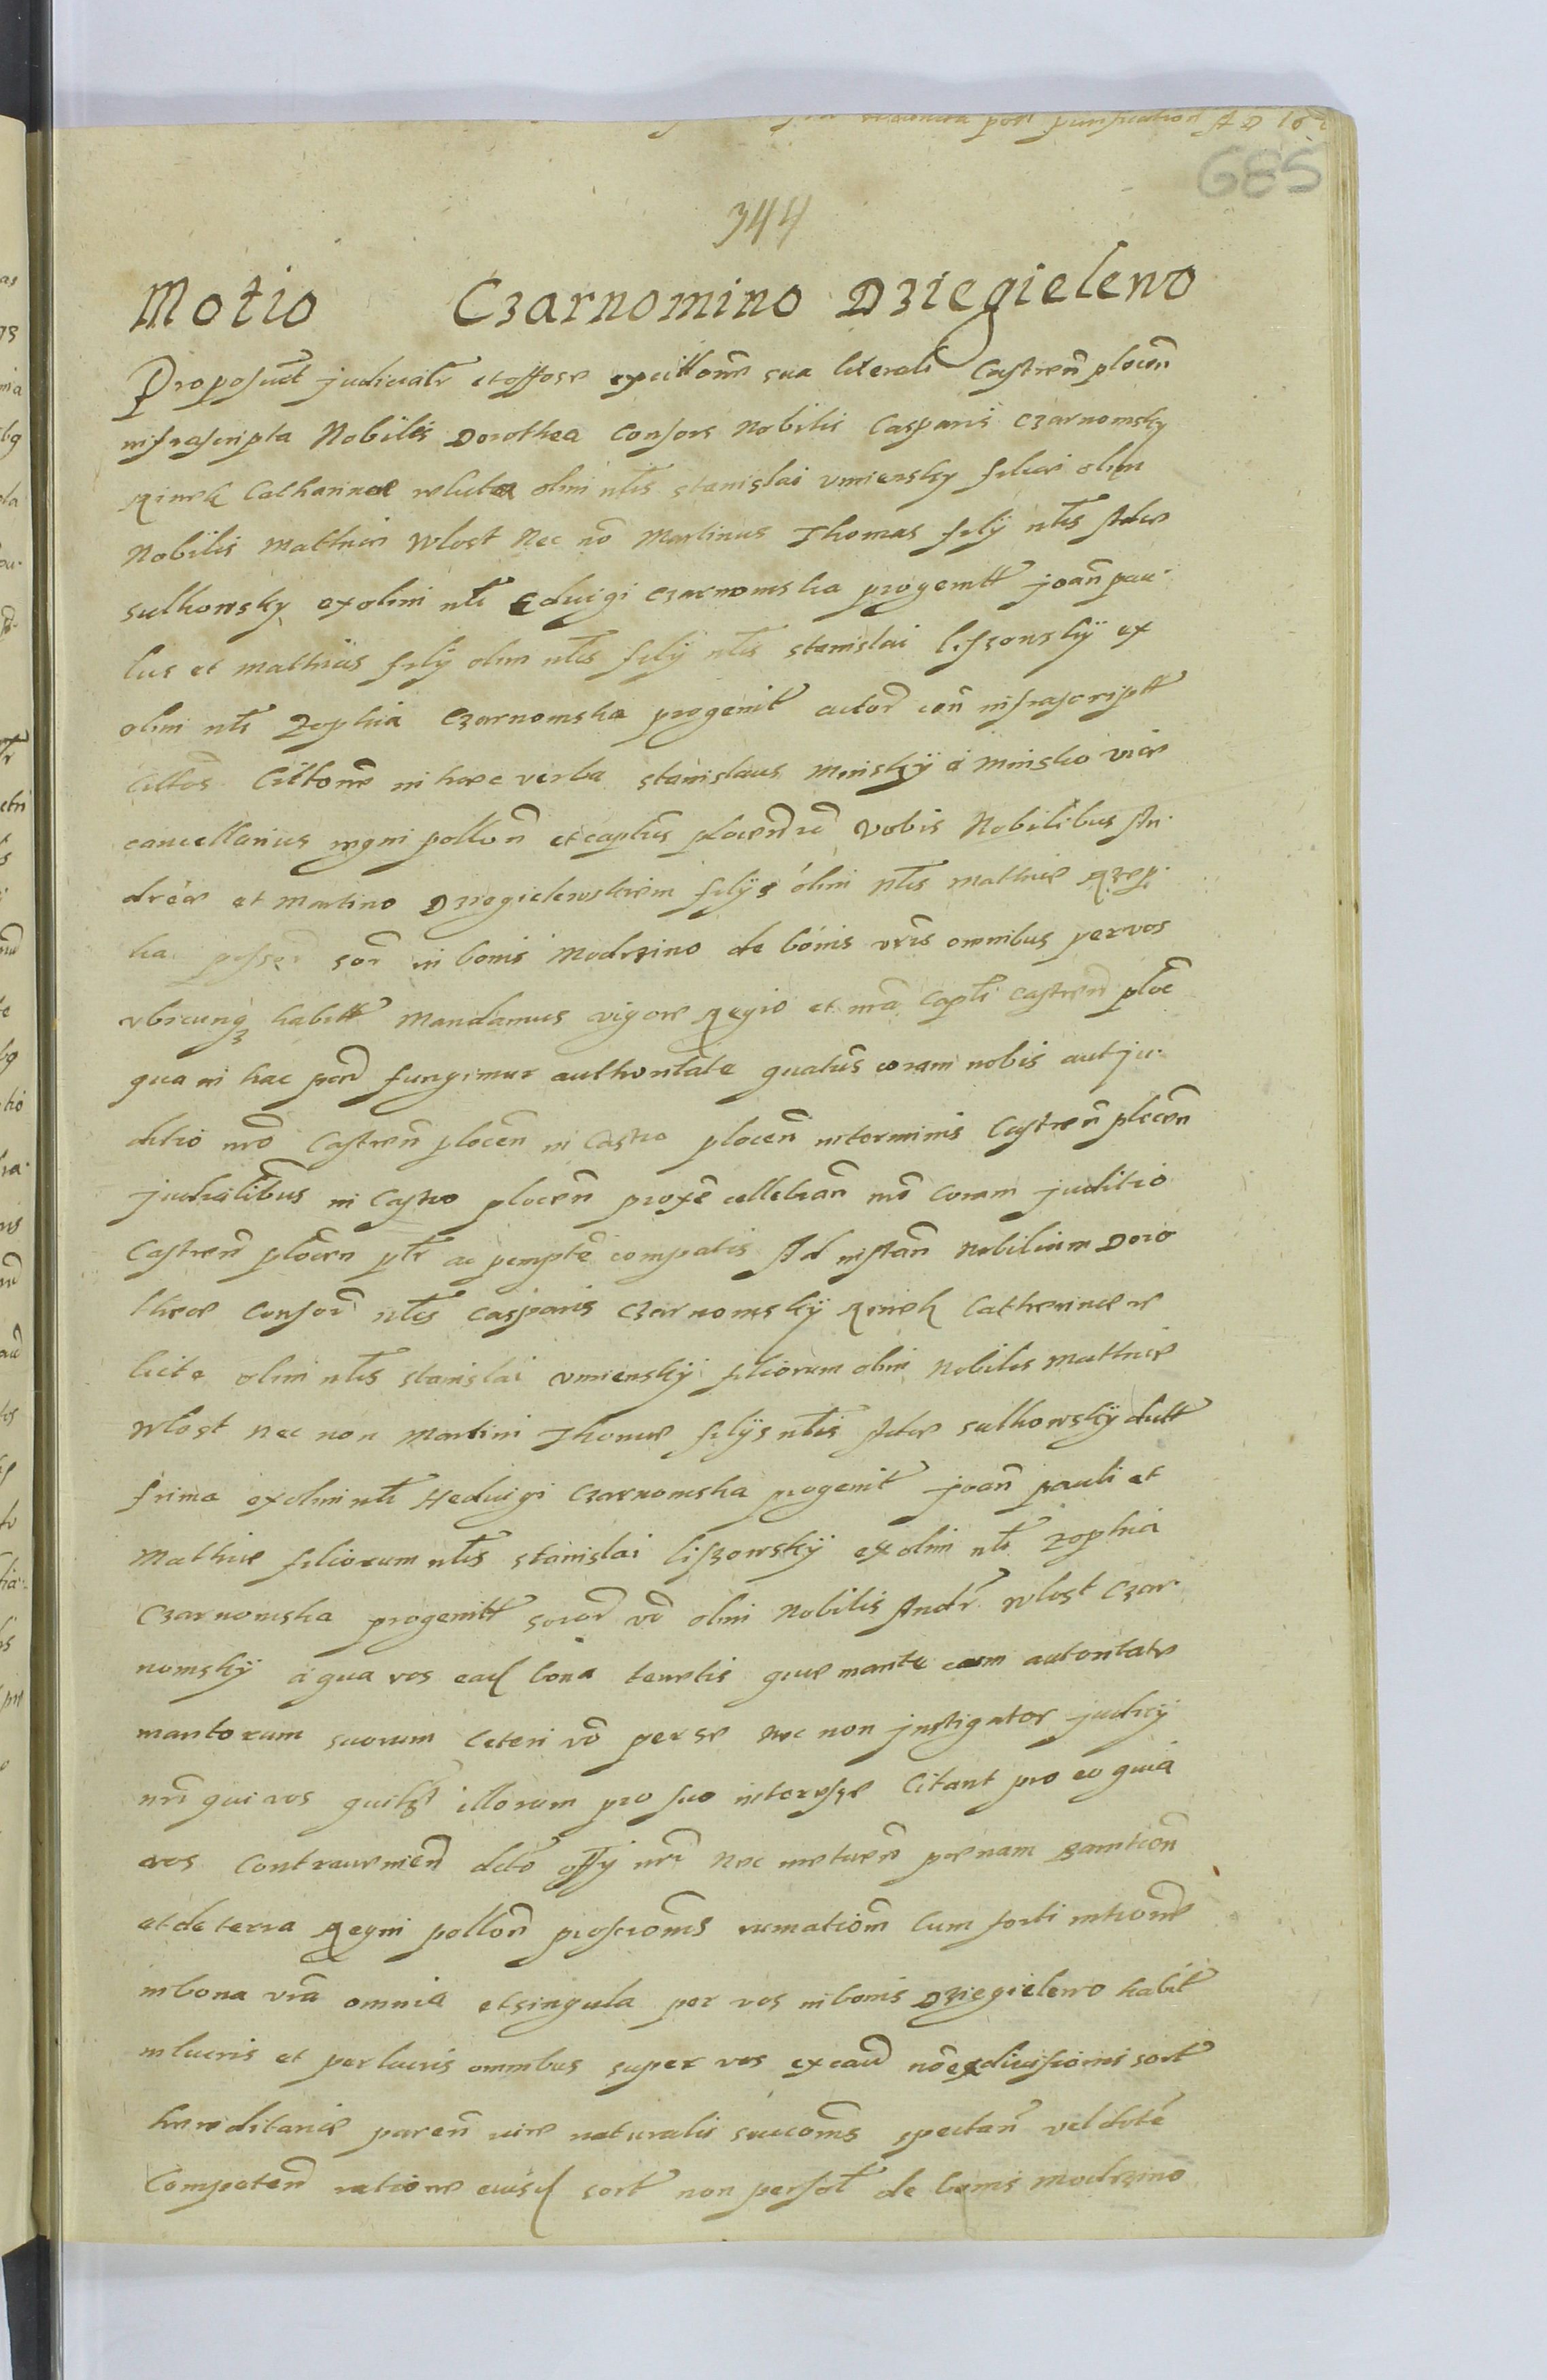 post purification A D 16
685
344
Motio Czarnomino Dziegielewo
Proposuit judicialr et offose excittone sua literali Castren plocen
infrascripta Nobilis Dorothea Consors Nobilis Casparis Czarnomsky
Rineck Catharinae relicta olim nlis stanislai vmiensky filiae olim
Nobilis Mathiae Wlost Nec nō Martinus Thomas filÿ nlis Adae
sulkowsky ex olim nli Eduigi Czarnomska progenitt joan̄ pau
lus et mathias filÿ olim nlis filÿ nlis stanislai liszowskÿ ex
olim nli Zophia Czarnomska progenit actor con infrascriptt
Cittos Cittone in haec verba stanislaus Minskÿ à Minsko vice
cancellarius regni pollon et captus plocen vobis Nobilibus An
dreae et Martino Dziegielewskiem filÿs olim nlis mathiae Rzep
ka possesr sor in bonis Modrzino de bonis vris omnibus per vos
vbicunqz habitt Mandamus vigore Regio et nra Capli castren ploc
qua in hac pare fungimur authoritate quatus coram nobis aut ju
ditio nro Castren plocen in Castro plocen in terminis Castren plocen
judicialibus in Castro plocen proxe cellebran nro coram juditio
Castren plocen plr ac pempte compatis Ad instan Nobilium Doro
theae Consor nlis Casparis Czarnomskÿ Rineck Catherinae re
lictae olim nlis stanislai vmienskÿ filiorum olim Nobilis Mathiae
Wlost nec non Martini Thomae filÿs nlis Adae sulkowskÿ dutt
prima ex olim nli Heduigi Czarnomska progenit joan pauli et
Mathiae filiorum nlis stanislai liszowskÿ ex olim nli Zophia
Czarnomska progenitt soror vo olim Nobilis Andr Wlost Czar
nomskÿ a qua vos ead bona tenetis quae marite cum autoritate
maritorum suorum Ceteri vo per se nec non jnstigator judicÿ
nri qui vos quilzt illorum pro suo interesse Citant pro eo quia
vos Contravenien deto offÿ nri Nec metuen poenam banition
et de terra Regni pollon proscroms rumation Cum forti introme
in bona vra omnia et singula per vos in bonis Dziegielewo habit
in lucris et perlucris omnibus super vos ex caud no ex divisionis sort
hereditariae paren iure naturalis succoms spectan vel dote
Competen ratione eiusd sort non persol de bonis Modrzino